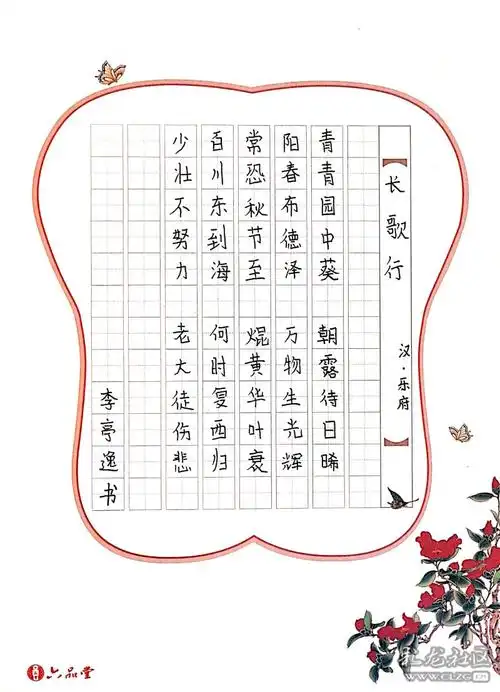 长歌行
汉·乐府
青青园中葵 朝露待日晞
阳春布德泽 万物生光辉
常恐秋节至 焜黄华叶衰
百川东到海 何时复西归
少壮不努力 老大徒伤悲
李亭逸书
六品堂
九龙社区
WWW.CLZG.CN